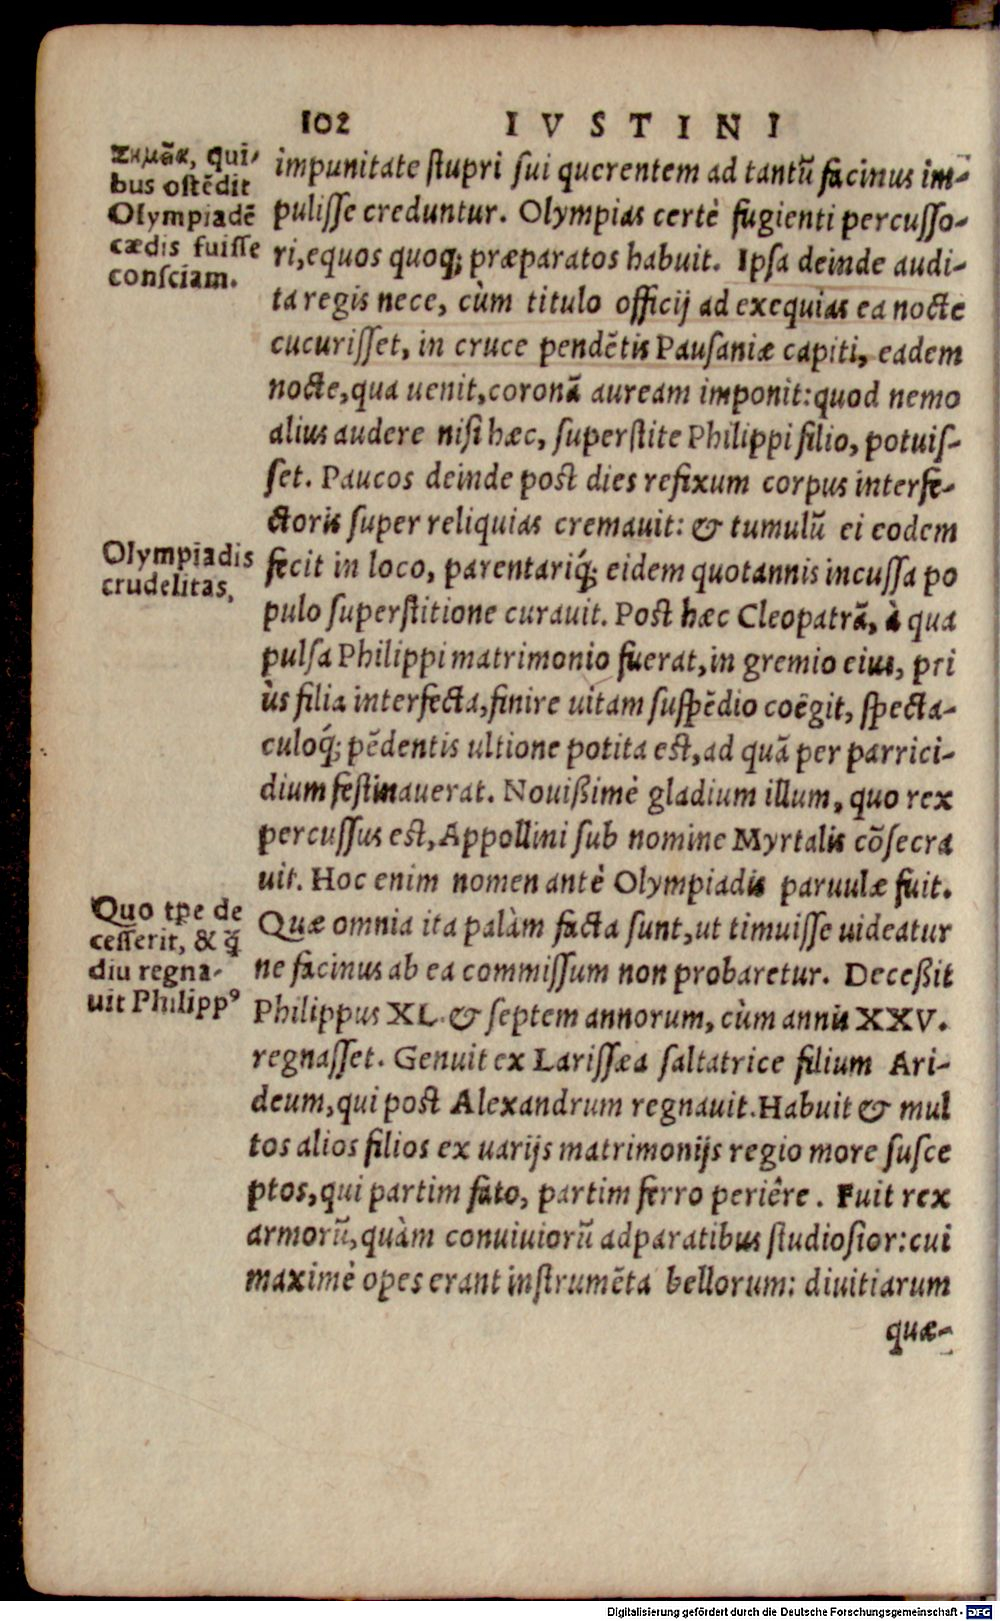 102 IVSTINI
Σημᾶα, qui-
bus ostẽdit
Olympiadẽ
cædis fuisse
consciam.
impunitate stupri sui querentem ad tantũ facinus im-
pulisse creduntur. Olympias certè fugienti percusso-
ri, equos quoq; præparatos habuit. Ipsa deinde audi-
ta regis nece, cùm titulo officij ad exequias ea nocte
cucurisset, in cruce pendẽtis Pausaniæ capiti, eadem
nocte, qua uenit, coronã auream imponit: quod nemo
alius audere nisi hæc, superstite Philippi filio, potuis-
set. Paucos deinde post dies refixum corpus interfe-
ctoris super reliquias cremauit: & tumulũ ei eodem
Olympiadis
crudelitas,
fecit in loco, parentariq́; eidem quotannis incussa po
pulo superstitione curauit. Post hæc Cleopatrã, à qua
pulsa Philippi matrimonio fuerat, in gremio eius, pri
ùs filia interfecta, finire uitam suspẽdio coëgit, specta-
culoq́; pẽdentis ultione potita est, ad quã per parrici-
dium festinauerat. Nouißimè gladium illum, quo rex
percussus est, Appollini sub nomine Myrtalis cõsecra
uit. Hoc enim nomen antè Olympiadis paruulæ fuit.
Quo tꝑe de
cesserit, & q̃
diu regna-
uit Philippꝰ
Quæ omnia ita palàm facta sunt, ut timuisse uideatur
ne facinus ab ea commissum non probaretur. Deceßit
Philippus XL. & septem annorum, cùm annis XXV.
regnasset. Genuit ex Larissæa saltatrice filium Ari-
deum, qui post Alexandrum regnauit. Habuit & mul
tos alios filios ex uarijs matrimonijs regio more susce
ptos, qui partim fato, partim ferro periêre. Fuit rex
armorũ, quàm conuiuiorũ adparatibus studiosior: cui
maximè opes erant instrumẽta bellorum: diuitiarum
quæ-
Digitalisierung gefördert durch die Deutsche Forschungsgemeinschaft - DFG